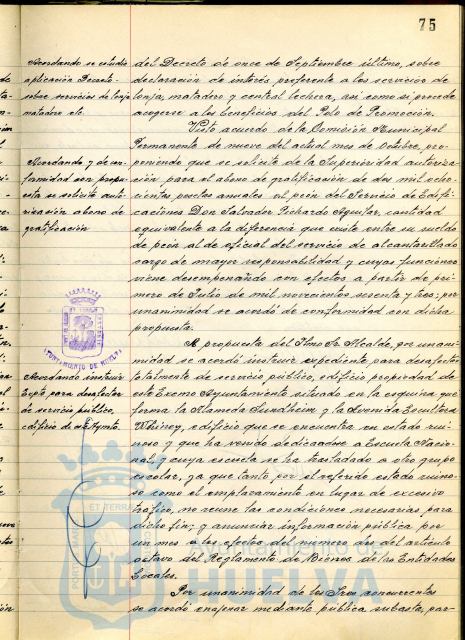 75
Acordando se estudie
aplicación Decreto
sobre servicios de lonja
matadero etc.
Acordando y de con-
formidad con propu-
esta se solicite auto-
rización abono de
gratificación
AYUNTAMIENTO DE HUELVA
Acordando instruir
Expte para desafectar
de servicio público,
edificio de este Aymto.
del Decreto de once de Septiembre último, sobre
declaración de interés preferente a los servicios de
lonja, matadero y central lechera, así como si procede
acogerse a los beneficios del Polo de Promoción.
Visto acuerdo de la Comisión Municipal
Permanente de nueve del actual mes de Octubre, pro-
poniendo que se solicite de la Superioridad autoriza-
ción para el abono de gratificación de dos mil ocho-
cientas pesetas anuales al peón del Servicio de Edifi-
caciones Don Salvador Pichardo Aguilar, cantidad
equivalente a la diferencia que existe entre su sueldo
de peón al de oficial del servicio de alcantarillado
cargo de mayor responsabilidad y cuyas funciones
viene desempeñando con efectos a partir de pri-
mero de Julio de mil novecientos sesenta y tres; por
unanimidad se acordó de conformidad con dicha
propuesta.
A propuesta del Iltmo Sr. Alcalde, por unani-
midad se acordó instruir expediente para desafectar
totalmente de servicio público, edificio propiedad de
este Excmo Ayuntamiento situado en la esquina que
forma la Alameda Sundheim y la Avenida Escultora
Whiney, edificio que se encuentra en estado rui-
noso y que ha venido dedicándose a Escuela Nacio-
nal, y cuya escuela se ha trasladado a otro grupo
escolar, ya que tanto por el referido estado ruino-
so como el emplazamiento en lugar de excesivo
tráfico, no reune las condiciones necesarias para
dicho fin; y anunciar información pública por
un mes a los efectos del número dos del artículo
octavo del Reglamento de Bienes de las Entidades
Locales.
Por unanimidad de los Sres concurrentes
se acordó enajenar mediante pública subasta, par-
Ayuntamiento de
HUELVA